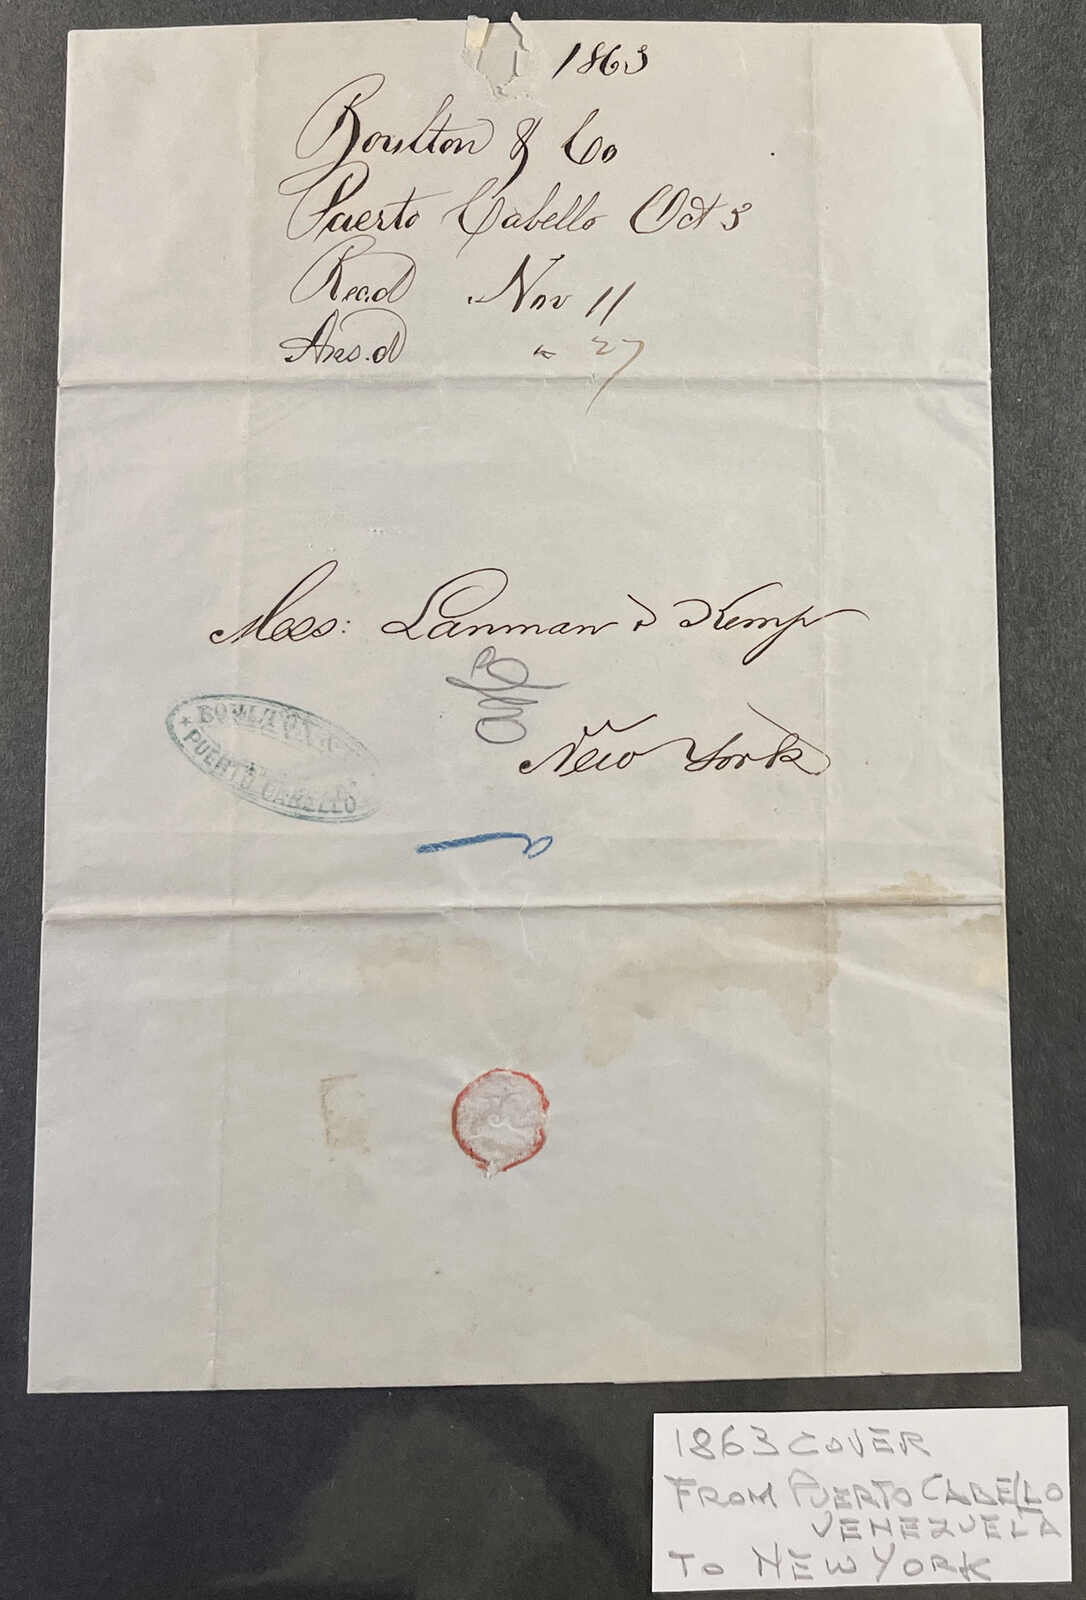 1863
Boulton & Co
Puerto Cabello Oct 3
Rec.d Nov 11
Ans.d " 27
Mess: Lanman & Kemp
New York
BOULTON
PUERTO CABELLO
1863 COVER
FROM PUERTO CABELLO
VENEZUELA
TO NEW YORK